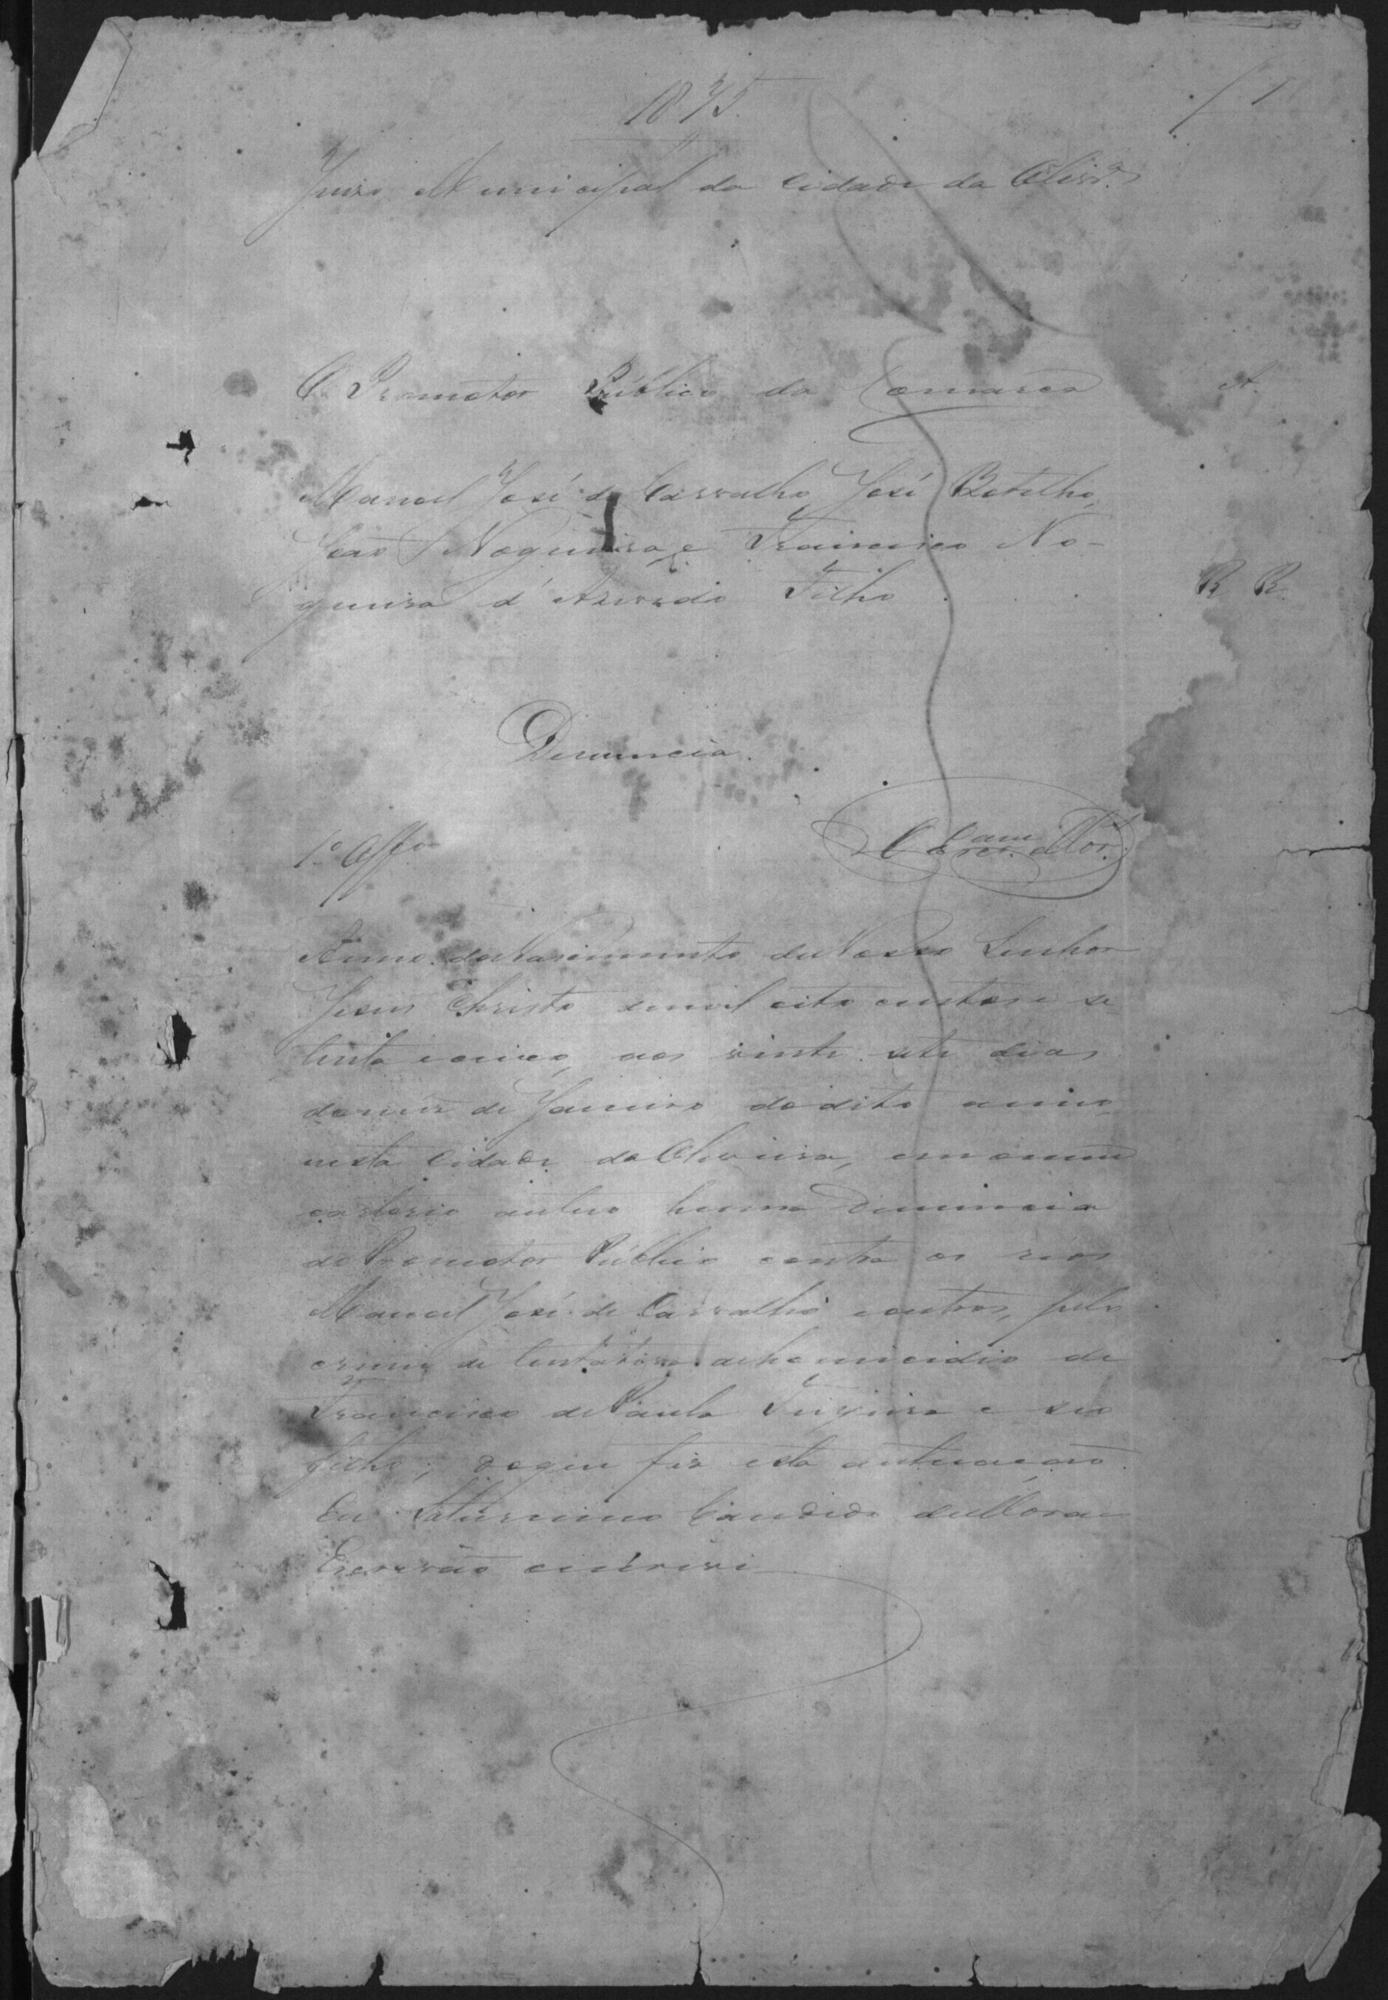 1875.
f 1
Juizo Municipal da Cidade da Olivr.ª
O Promotor Publico da Comarca A.
Manoel José de Carvalho José Botelho,
João Nogueira e Francisco No-
gueira d'Azevedo Filho . . . R R.
Denuncia.
1.º Off.º
Escr.am Mor.
Anno do Nascimento de Nosso Senhor
Jesus Christo de mil oito centos e se-
tenta e cinco, aos vinte sete dias
do mez de Janeiro do dito anno
nesta Cidade da Oliveira, em o meu
cartorio autuo huma Denuncia
do Promotor Publico contra os reos
Manoel José de Carvalho e outros, pelo
crime de tentativa de homicidio de
Francisco de Paula Teixeira e seo
filho; do que fiz esta autuação.
Eu Saturnino Candido de Mora
Escrivão escrevi